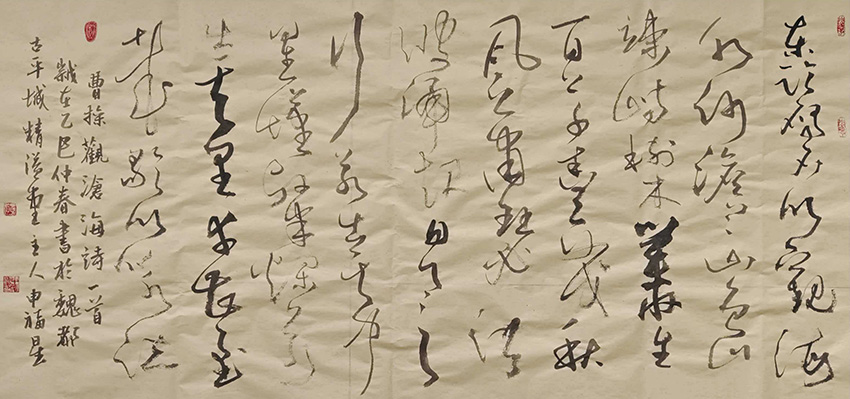 東臨碣石以觀滄海
水何澹々山島
竦峙樹木叢生
百草豐茂秋
風蕭瑟洪
波湧起日月之
行若出其中
星漢燦爛若
出其里幸甚至
哉歌以詠志
曹操觀滄海詩一首
歲在乙巳仲春書於魏都
古平城精溢堂主人申福星